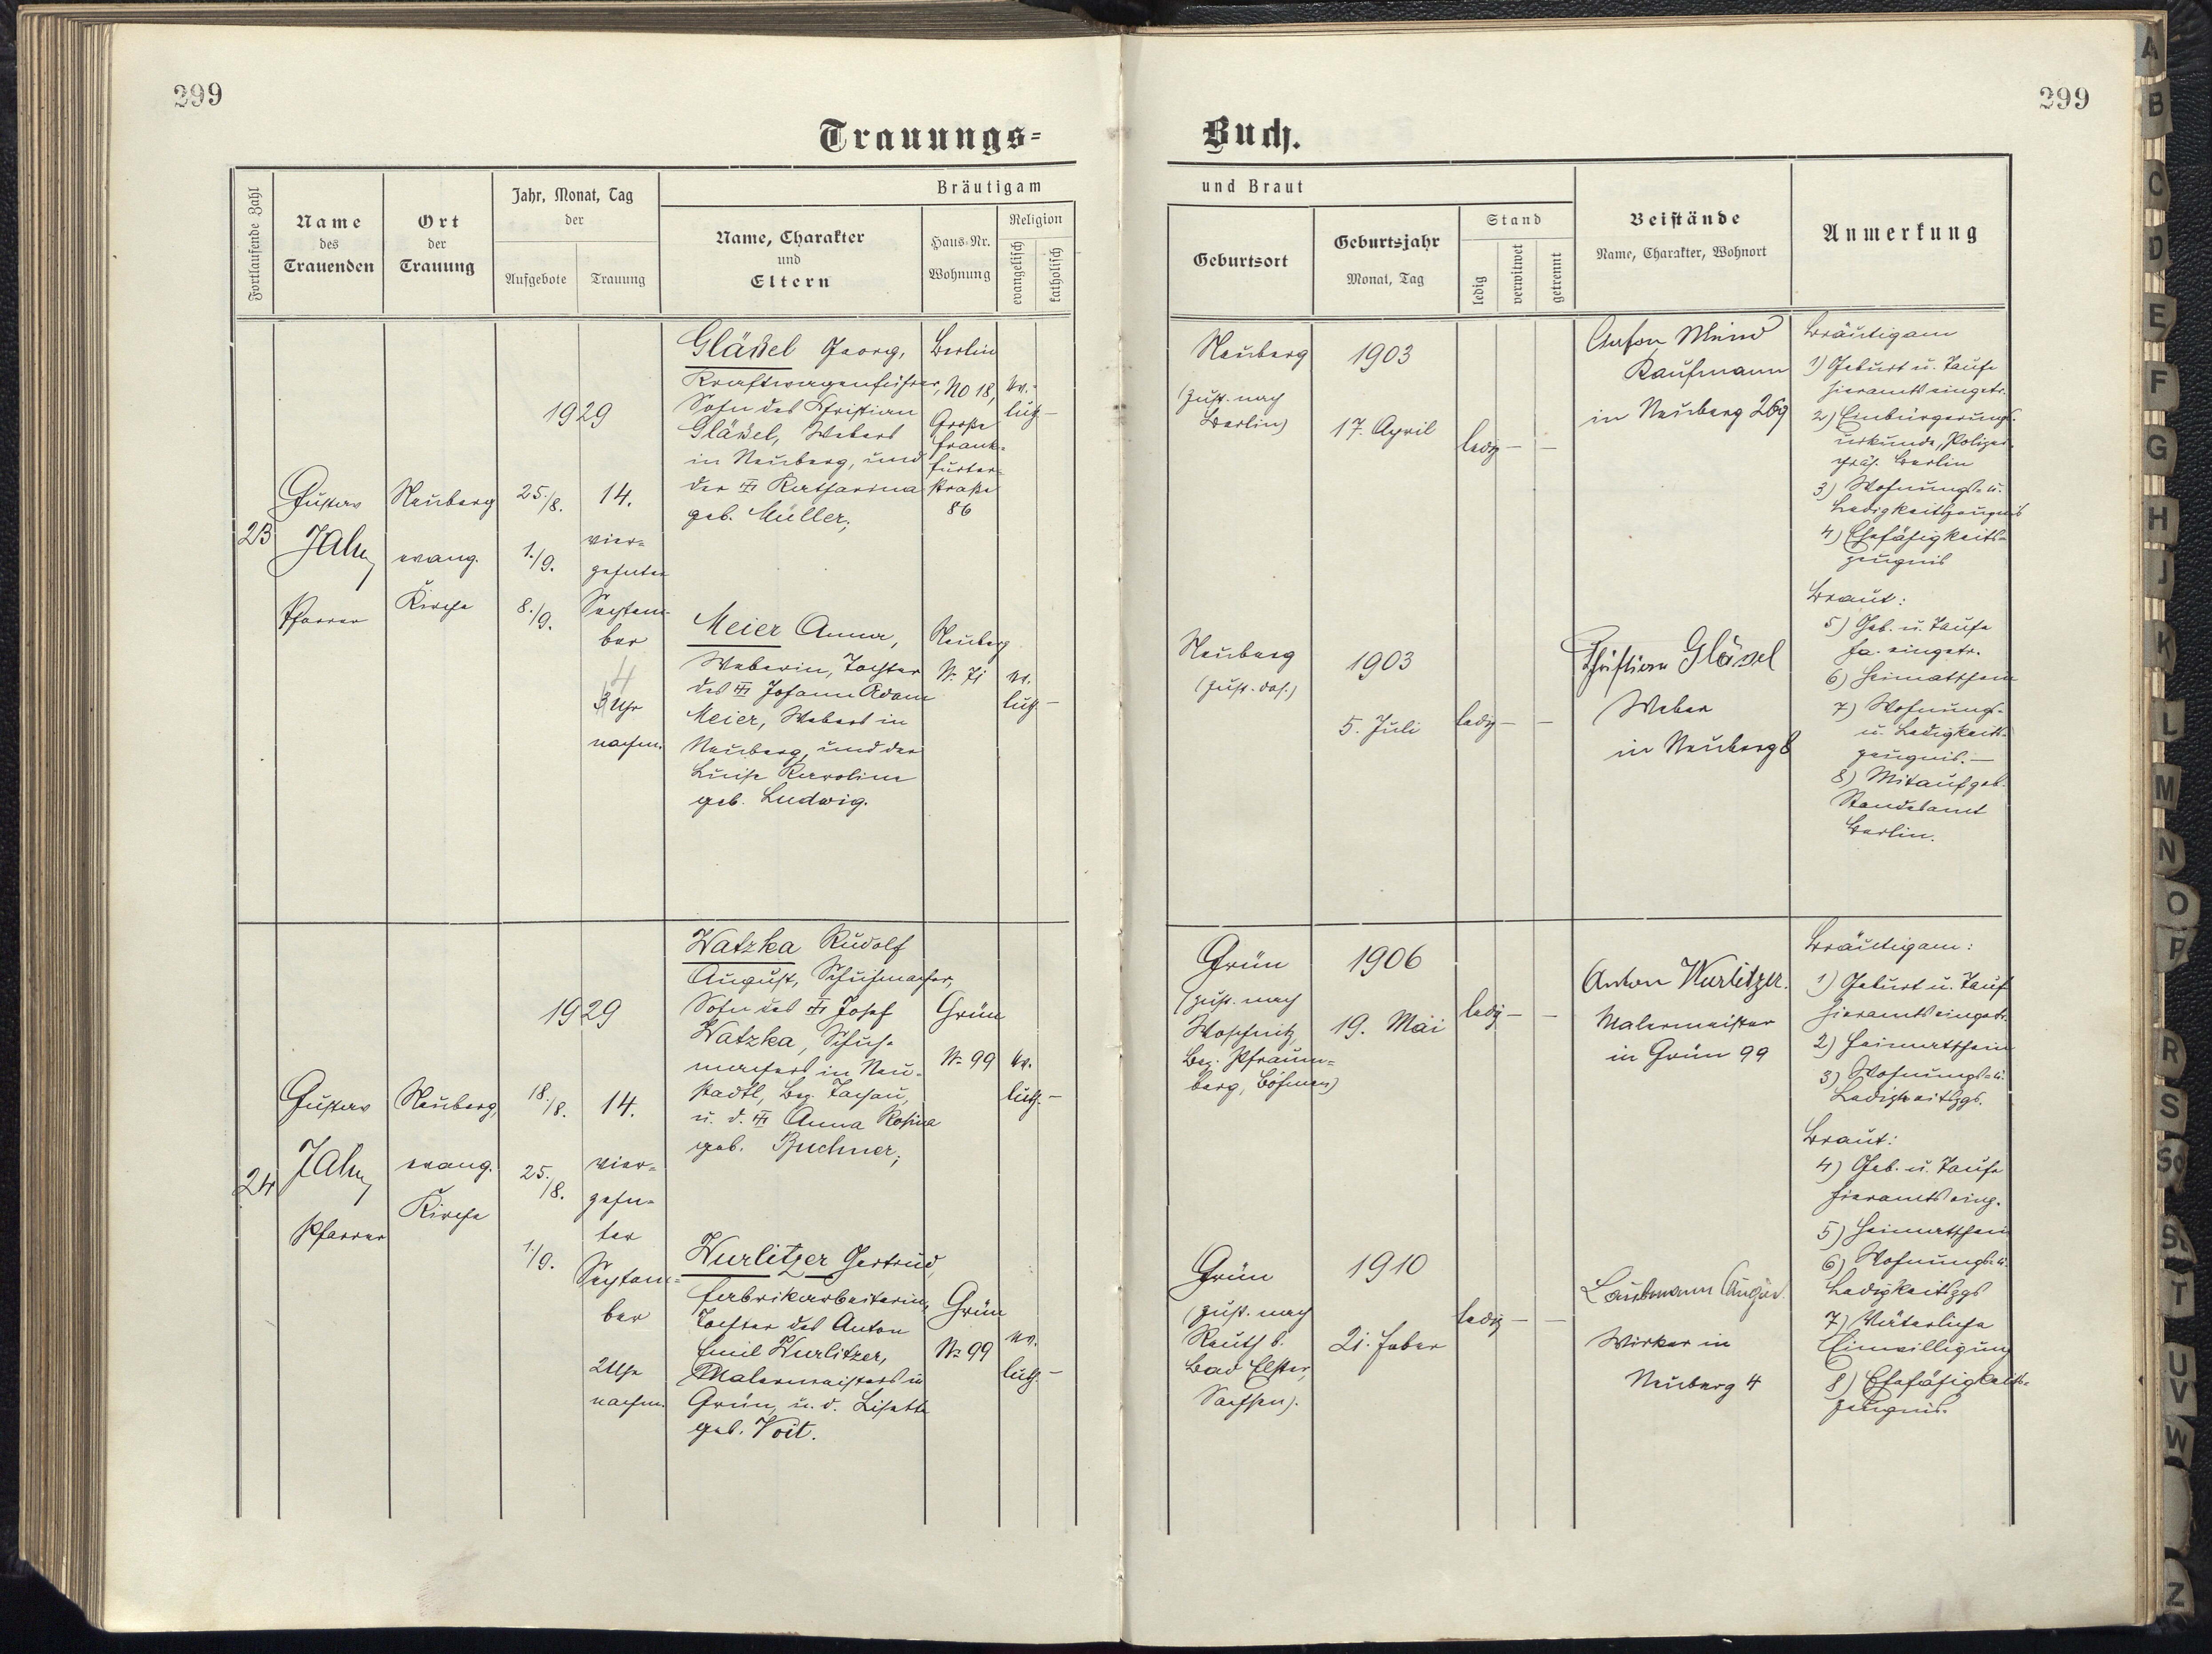 299
299
Trauungs=
Buch.
Fortlaufende Zahl
Name
des
Trauenden
Ort
der
Trauung
Jahr, Monat, Tag
der
Aufgebote
Trauung
Bräutigam
Name, Charakter
und
Eltern
Haus-Nr.
Wohnung
Religion
evangelisch
katholisch
und Braut
Geburtsort
Geburtsjahr
Monat, Tag
Stand
ledig
verwitwet
getrennt
Beistände
Name, Charakter, Wohnort
Anmerkung
23
Gustav
Jahn
Pfarrer
Neuberg
evang.
Kirche
1929
25./8.
1./9.
8./9.
14.
vier=
zehnter
Septem-
ber
4
3 Uhr
nachm.
Gläßel Georg,
Kraftwagenführer,
Sohn des Christian
Gläßel, Webers
in Neuberg, und
der Katharina
geb. Müller;
Berlin
NO 18,
Große
Frank-
furter-
straße
86
ev.-
luth. –
Neuberg
(zust. nach
Berlin)
1903
17. April
ledig – –
Anton
Kaufmann
in Neuberg 269
Bräutigam
1) Geburt u. Taufe
hieramts eingetr.
2) Einbürgerungs-
urkunde, Polizei-
präs. Berlin
3) Wohnungs- u.
Ledigkeitszeugnis
4) Ehefähigkeits-
zeugnis
Meier Anna,
Weberin, Tochter
des Johann Adam
Meier, Webers in
Neuberg, und der
Luise Karoline
geb. Ludwig.
Neuberg
Nr. 71
ev.
luth –
Neuberg
(zust. das.)
1903
5. Juli
ledig – –
Christian Gläsel
Weber
in Neuberg 8
Braut:
5) Geb. u. Taufe
ha. eingetr.
6) Heimatschein
7) Wohnungs-
u. Ledigkeits-
zeugnis. –
8) Mitaufgeb.
Standesamt
Berlin.
24
Gustav
Jahn
Pfarrer
Neuberg,
evang.
Kirche
1929
18./8.
25./8.
1./9.
14.
vier-
zehn-
ter
Septem=
ber
2 Uhr
nachm.
Watzka Rudolf
August, Schuhmacher,
Sohn des Josef
Watzka, Schuh-
machers in Neu-
stadtl, Bez. Tachau,
u. d. Anna Rosina
geb. Buchner;
Grün
Nr. 99
ev.
luth. –
Grün
(zust. nach
Woschnitz,
Bez. Pfraum=
berg, Böhmen)
1906
19. Mai
ledig – –
Anton Wurlitzer.
Malermeister
in Grün 99
Bräutigam:
1) Geburt u. Taufe
hieramts eingetr.
2) Heimatschein
3) Wohnungs- u.
Ledigkeitszgs.
Wurlitzer Gertrud,
Fabrikarbeiterin,
Tochter des Anton
Emil Wurlitzer,
Malermeisters in
Grün, u. d. Lisette
geb. Voit.
Grün
Nr. 99
ev.
luth. –
Grün
(zust. nach
Reuth b.
Bad Elster,
Sachsen).
1910
21. Feber
ledig – –
Wirker in
Neuberg 4
Braut:
4) Geb. u. Taufe
hieramts eing.
5) Heimatschein
6) Wohnungs- u.
Ledigkeitszgs
7) Väterliche
Einwilligung
8) Ehefähigkeits-
zeugnis.
A
B
C
D
E
F
G
H
J
K
L
M
N
O
P
R
S
Sch
St
T
U
V
W
Z